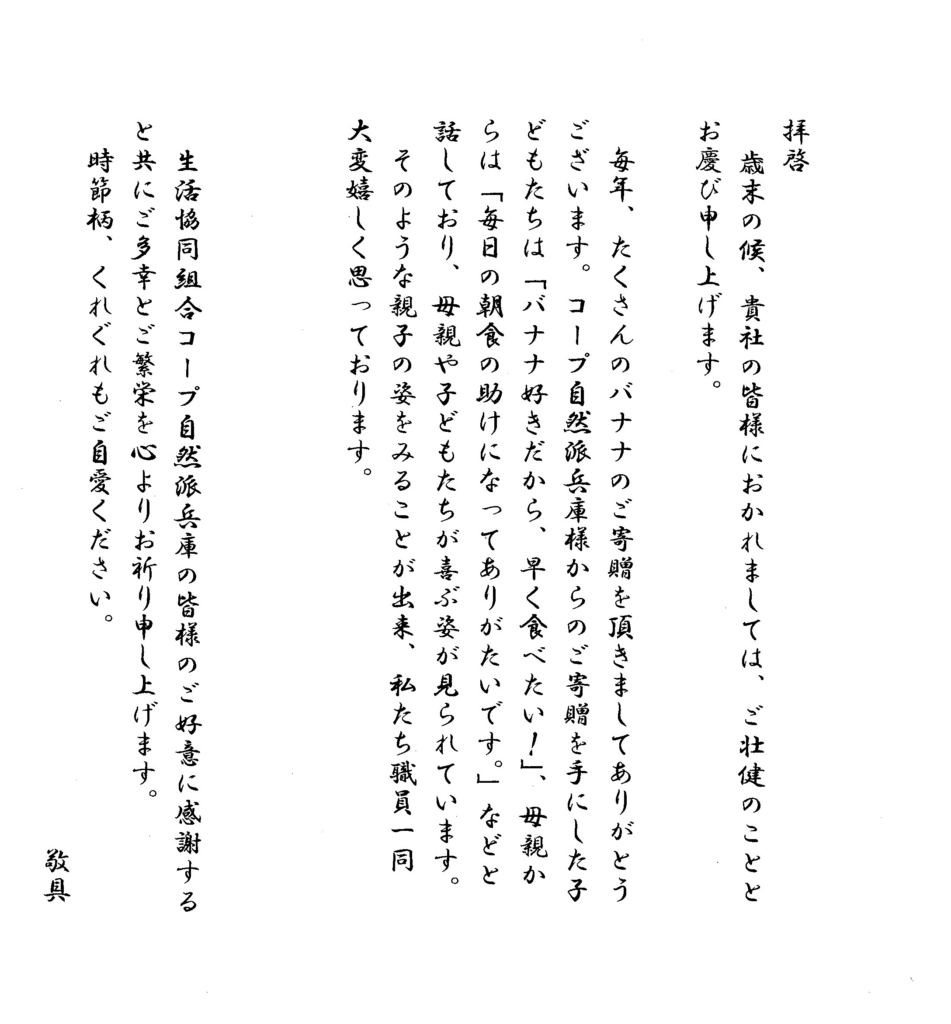 拝啓
歳末の候、貴社の皆様におかれましては、ご壮健のことと
お慶び申し上げます。
毎年、たくさんのバナナのご寄贈を頂きましてありがとう
ございます。コープ自然派兵庫様からのご寄贈を手にした子
どもたちは「バナナ好きだから、早く食べたい！」、母親か
らは「毎日の朝食の助けになってありがたいです。」などと
話しており、母親や子どもたちが喜ぶ姿が見られています。
そのような親子の姿をみることが出来、私たち職員一同
大変嬉しく思っております。
生活協同組合コープ自然派兵庫の皆様のご好意に感謝する
と共にご多幸とご繁栄を心よりお祈り申し上げます。
時節柄、くれぐれもご自愛ください。
敬具